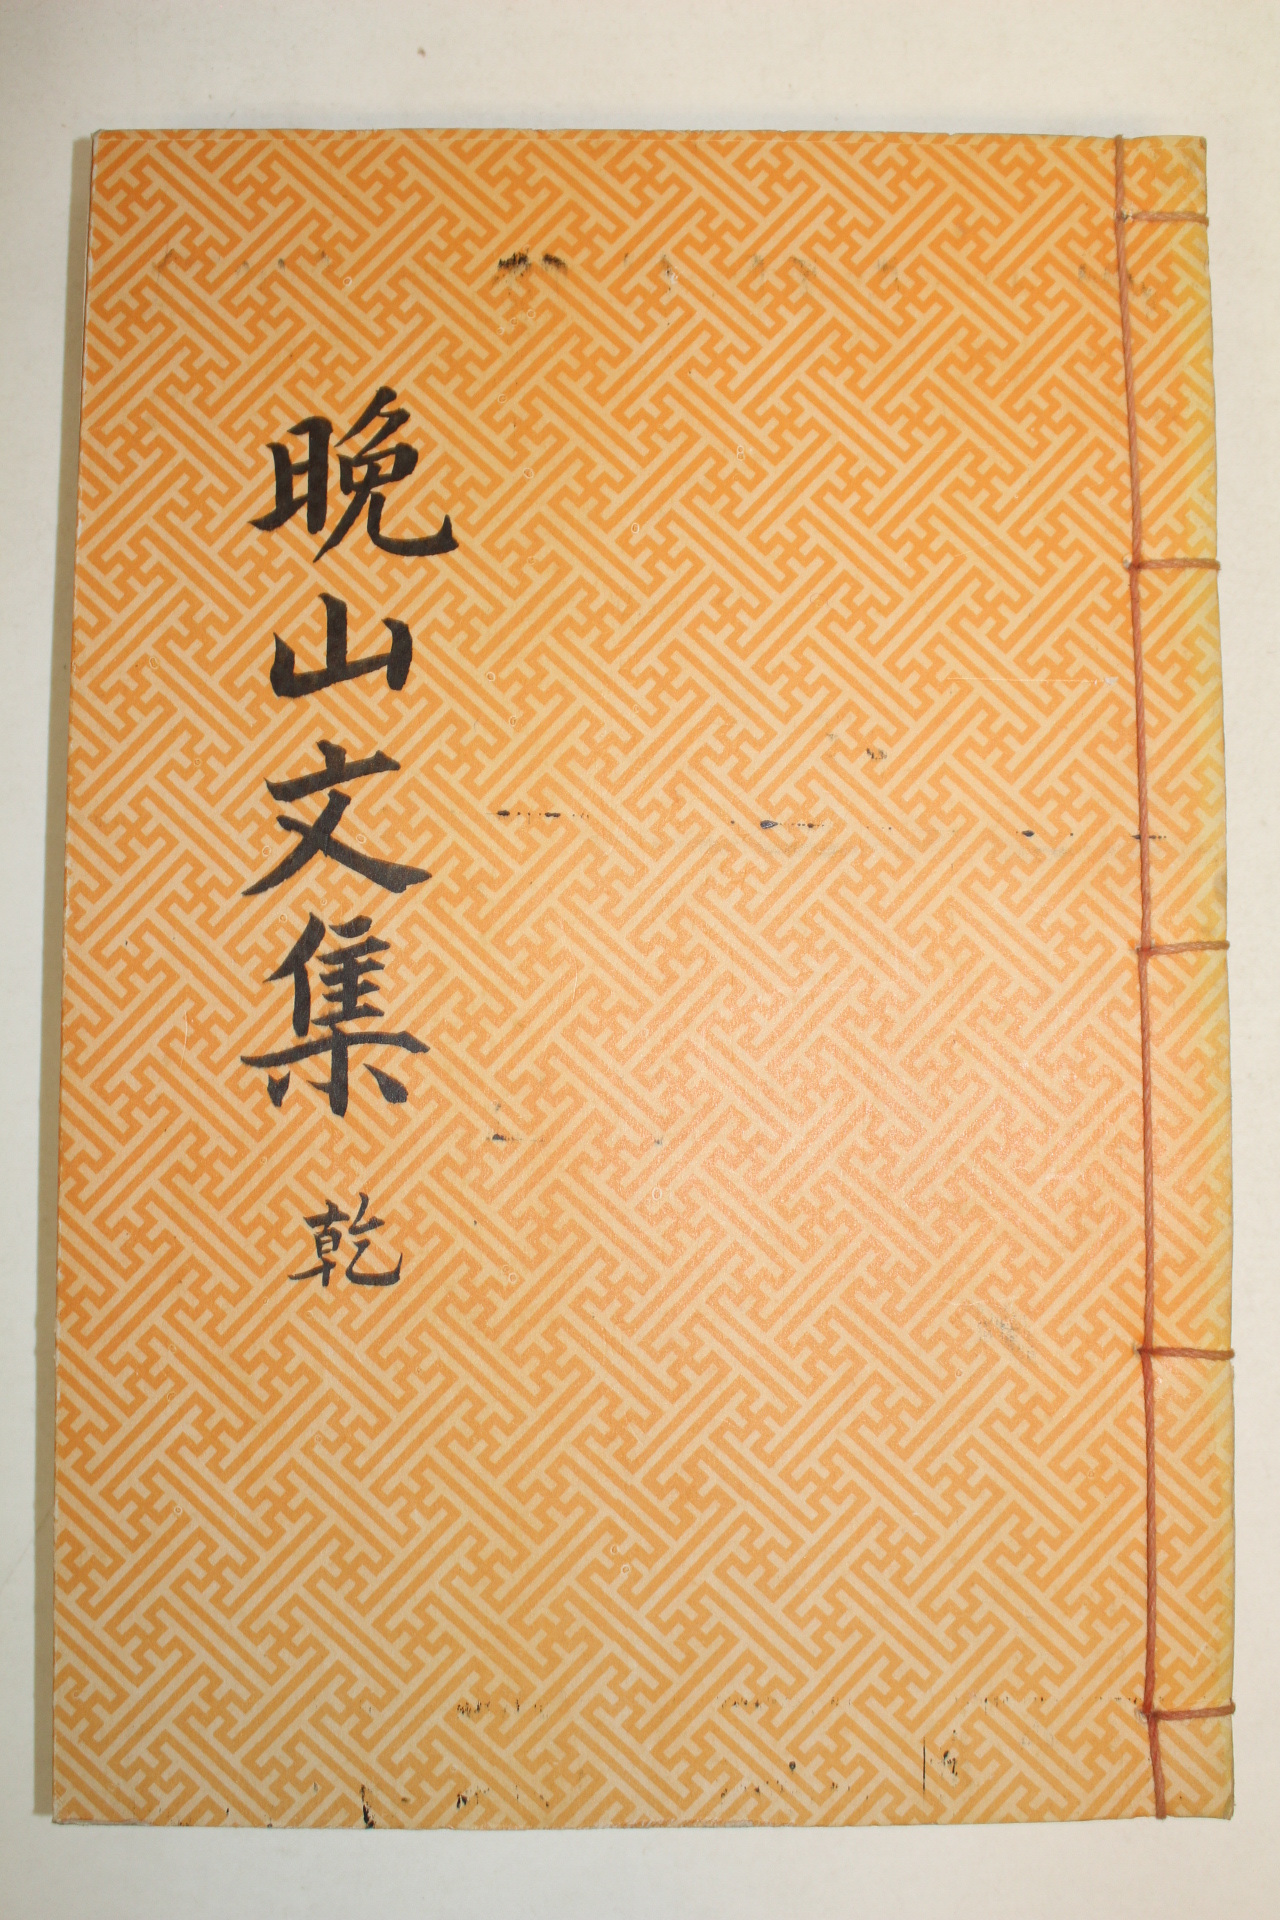 晩山文集 乾